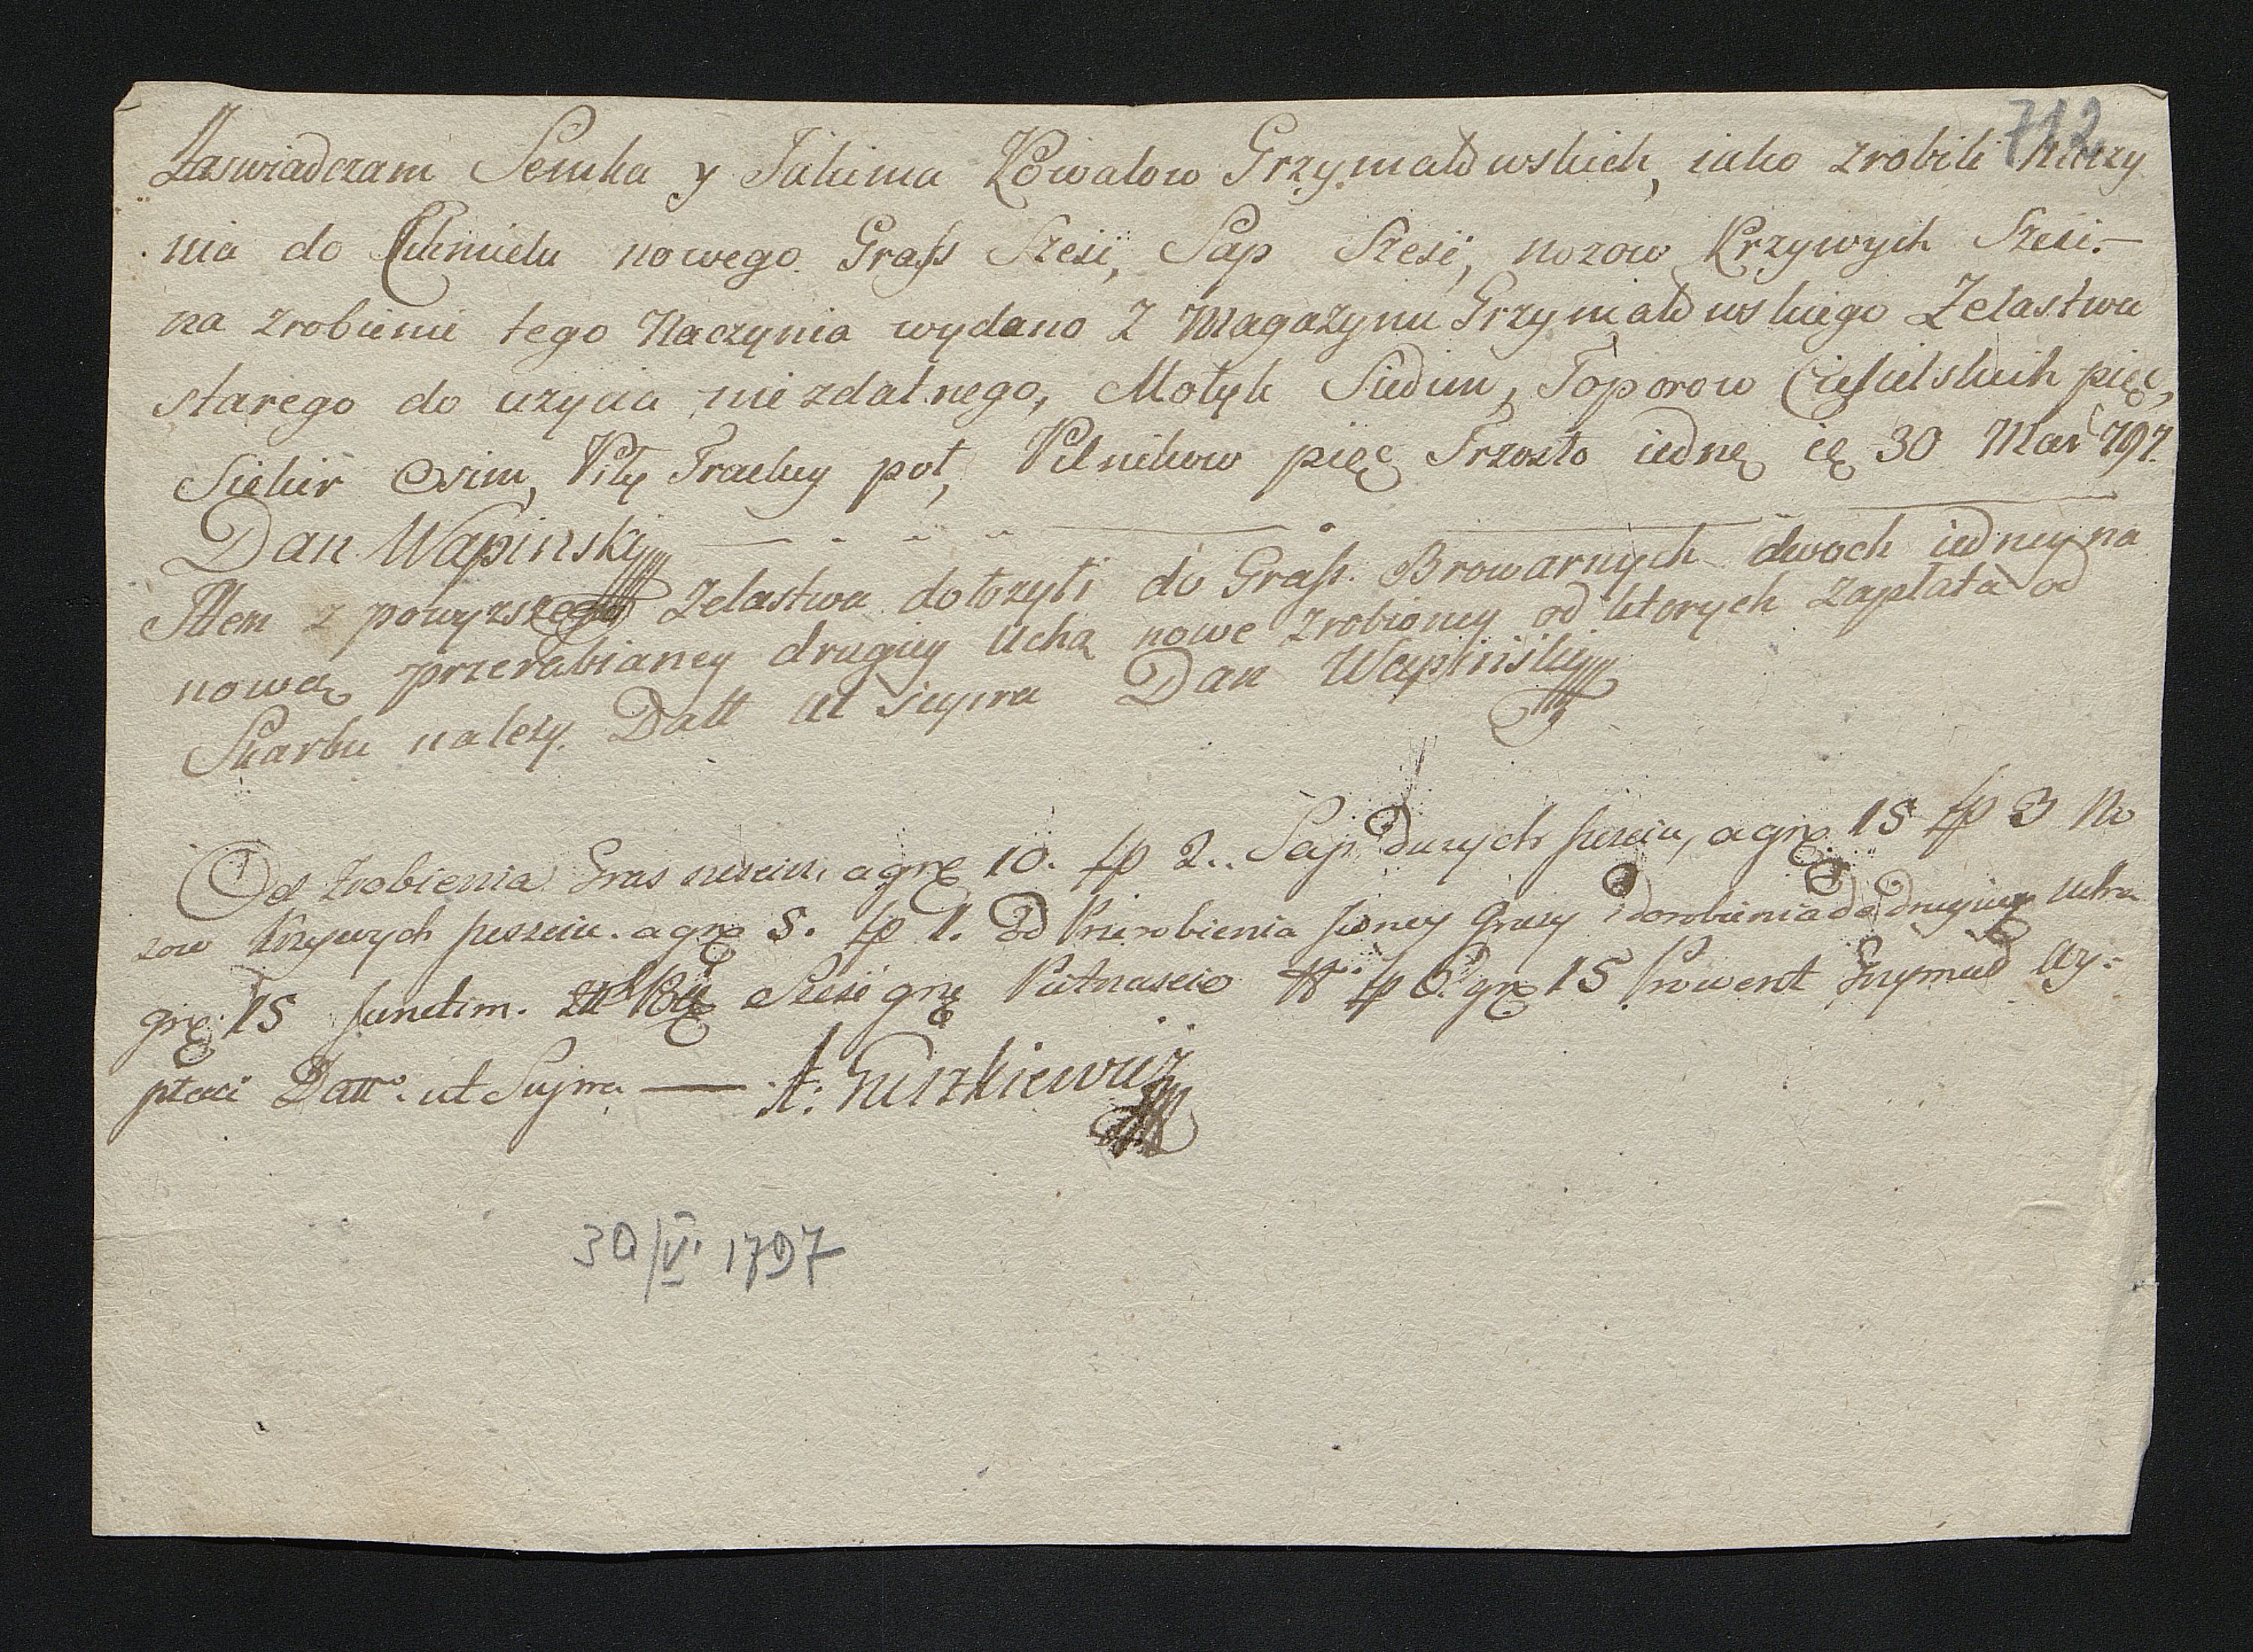 712
Zaswiadczam Semka y Jakima Kowalow Grzymałowskich, iako zrobili Naczy
nia do Chmielu nowego Grass Sześć, Sap Sześć, nozow Krzywych Sześć.—
na zrobienie tego Naczynia wydano Z Magazynu Grzymałowskiego Zelastwa
starego do uzycia nie zdatnego, Motyk Siedim, Toporow Ciesielskich pięć,
Siekir Osim, Piły Trackiey poł, Pilnikow pięć 30 Mai 797.
Dan Wapinski
Item z powyzszego Zelastwa dołozyli do Grass. Browarnych dwoch iedney na
nową przerabianey drugiey Ucha nowe zrobioney od ktorych zapłata od
Skarbu nalezy. Datt ut supra Dan Wapiński
Od Zrobienia Gras szesciu a grę 10. fp 2.. Sap Duzych szesciu, a grę 15 fp 3 No
zow Krzywych szesciu. a grę 5. fp 1. Od Przerobienia Jedney Grasy i dorobienia do drugiey ucha
grę 15 Junctim. Sześć grę Pietnascie fp 6. grę 15 Prowent Grzymał Wy-
płaci Datt. ut Supra — A: Guszkiewicz
30/V. 1797